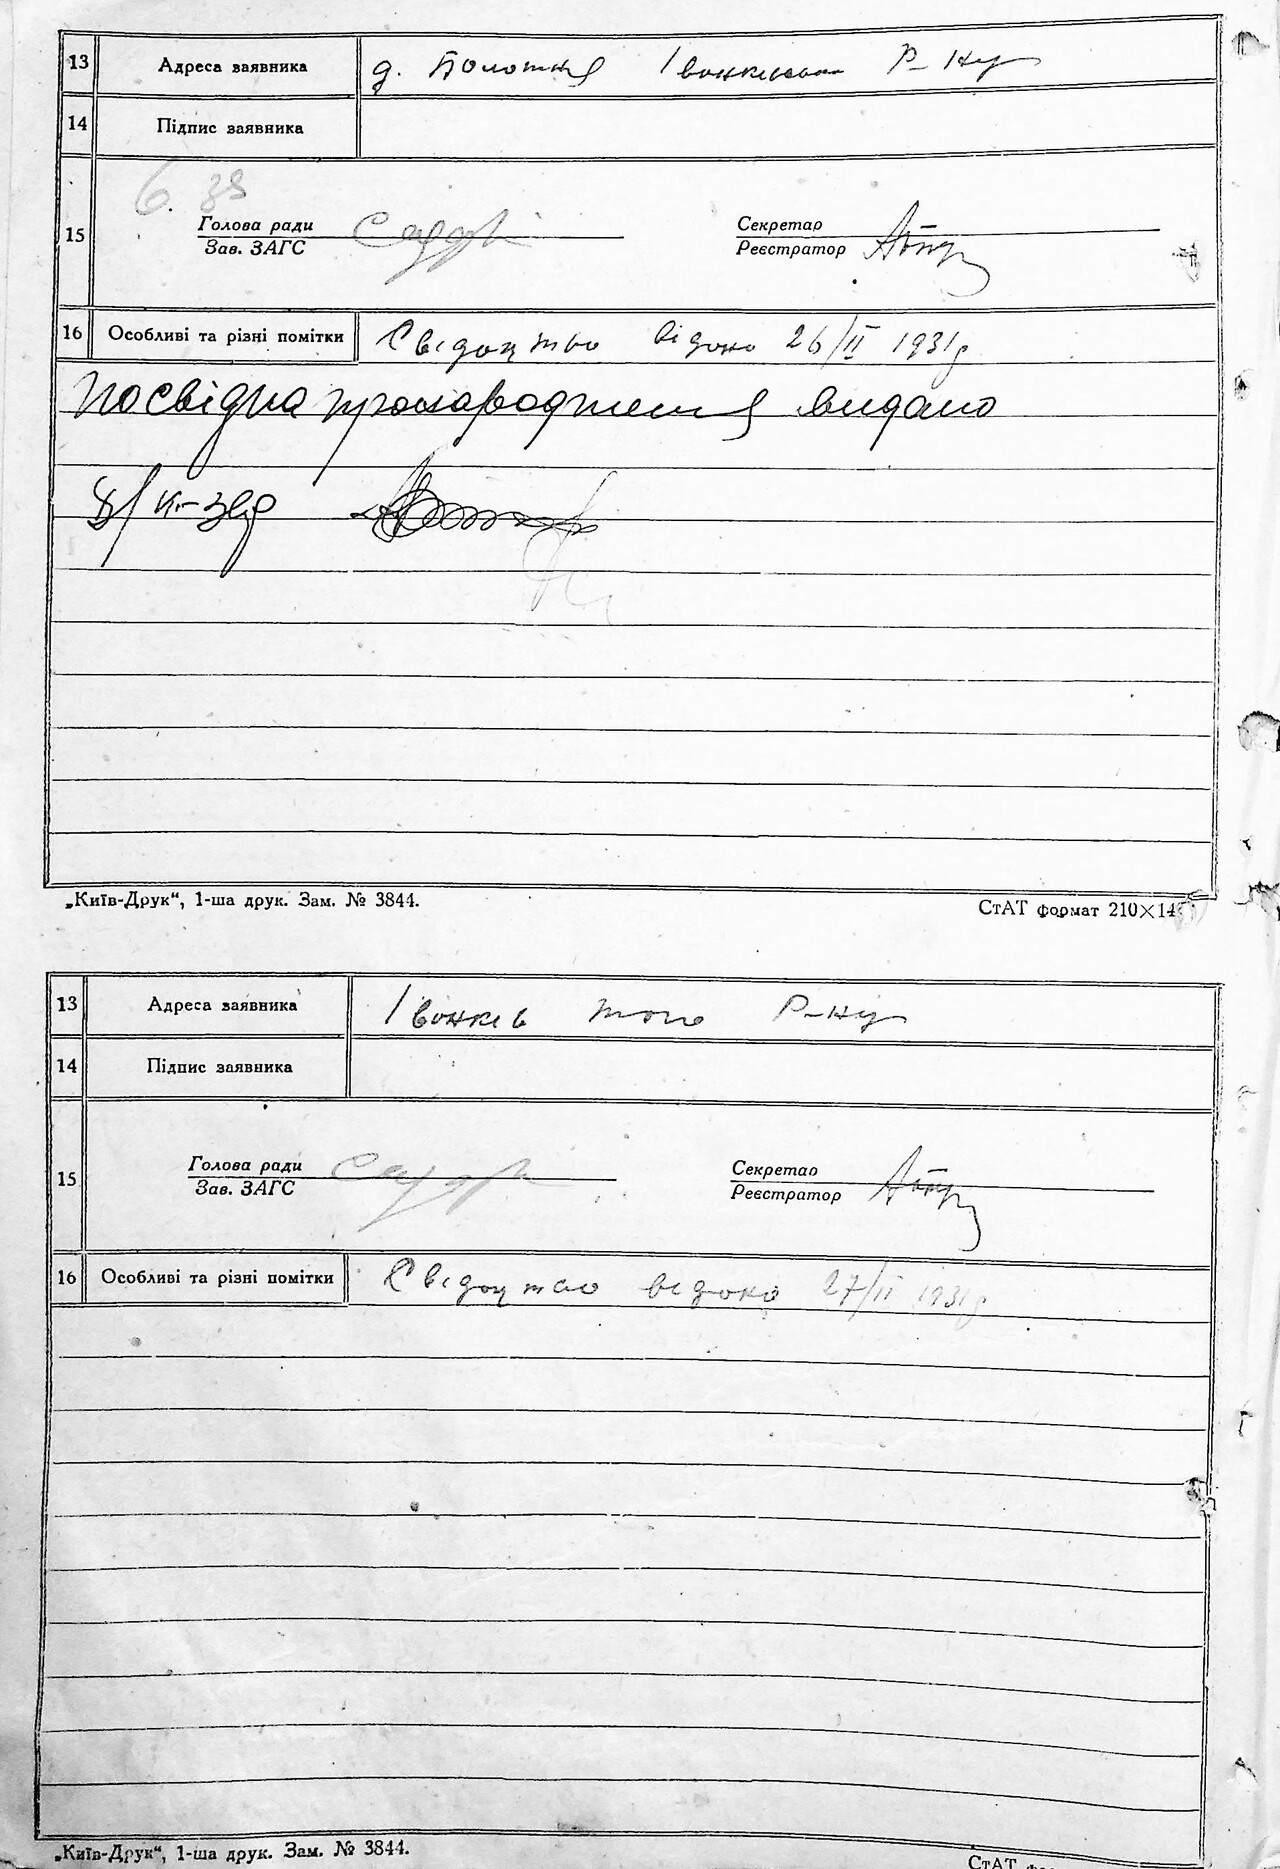 13 Адреса заявника д. Болотня Іванківськ Р-ну
14 Підпис заявника
6. 38
15 Голова ради Секретар
Зав. ЗАГС Реєстратор
16 Особливі та різні помітки Свідоцтво відоно 26/II 1931р
Посвідка про народження видано
„Київ-Друк“, 1-ша друк. Зам. № 3844. СтАТ формат 210×14
13 Адреса заявника Іванків того Р-ну
14 Підпис заявника
15 Голова ради Секретар
Зав. ЗАГС Реєстратор
16 Особливі та різні помітки Свідоцтво відоно 27/II 1931р
„Київ-Друк“, 1-ша друк. Зам. № 3844. СтАТ